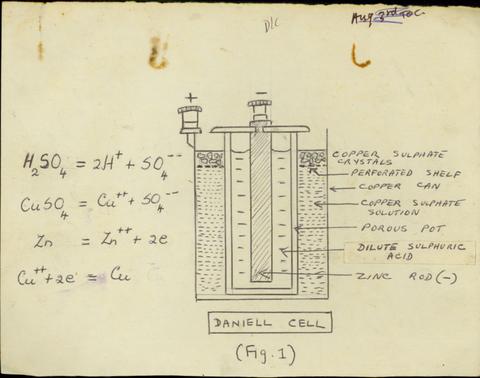 D/C
Aug 3rd
+
−
H₂SO₄ = 2H⁺ + SO₄⁻⁻
CuSO₄ = Cu⁺⁺ + SO₄⁻⁻
Zn = Zn⁺⁺ + 2e
Cu⁺⁺ + 2e = Cu
COPPER SULPHATE
CRYSTALS
PERFORATED SHELF
COPPER CAN
COPPER SULPHATE
SOLUTION
POROUS POT
DILUTE SULPHURIC
ACID
ZINC ROD (−)
DANIELL CELL
(Fig. 1)